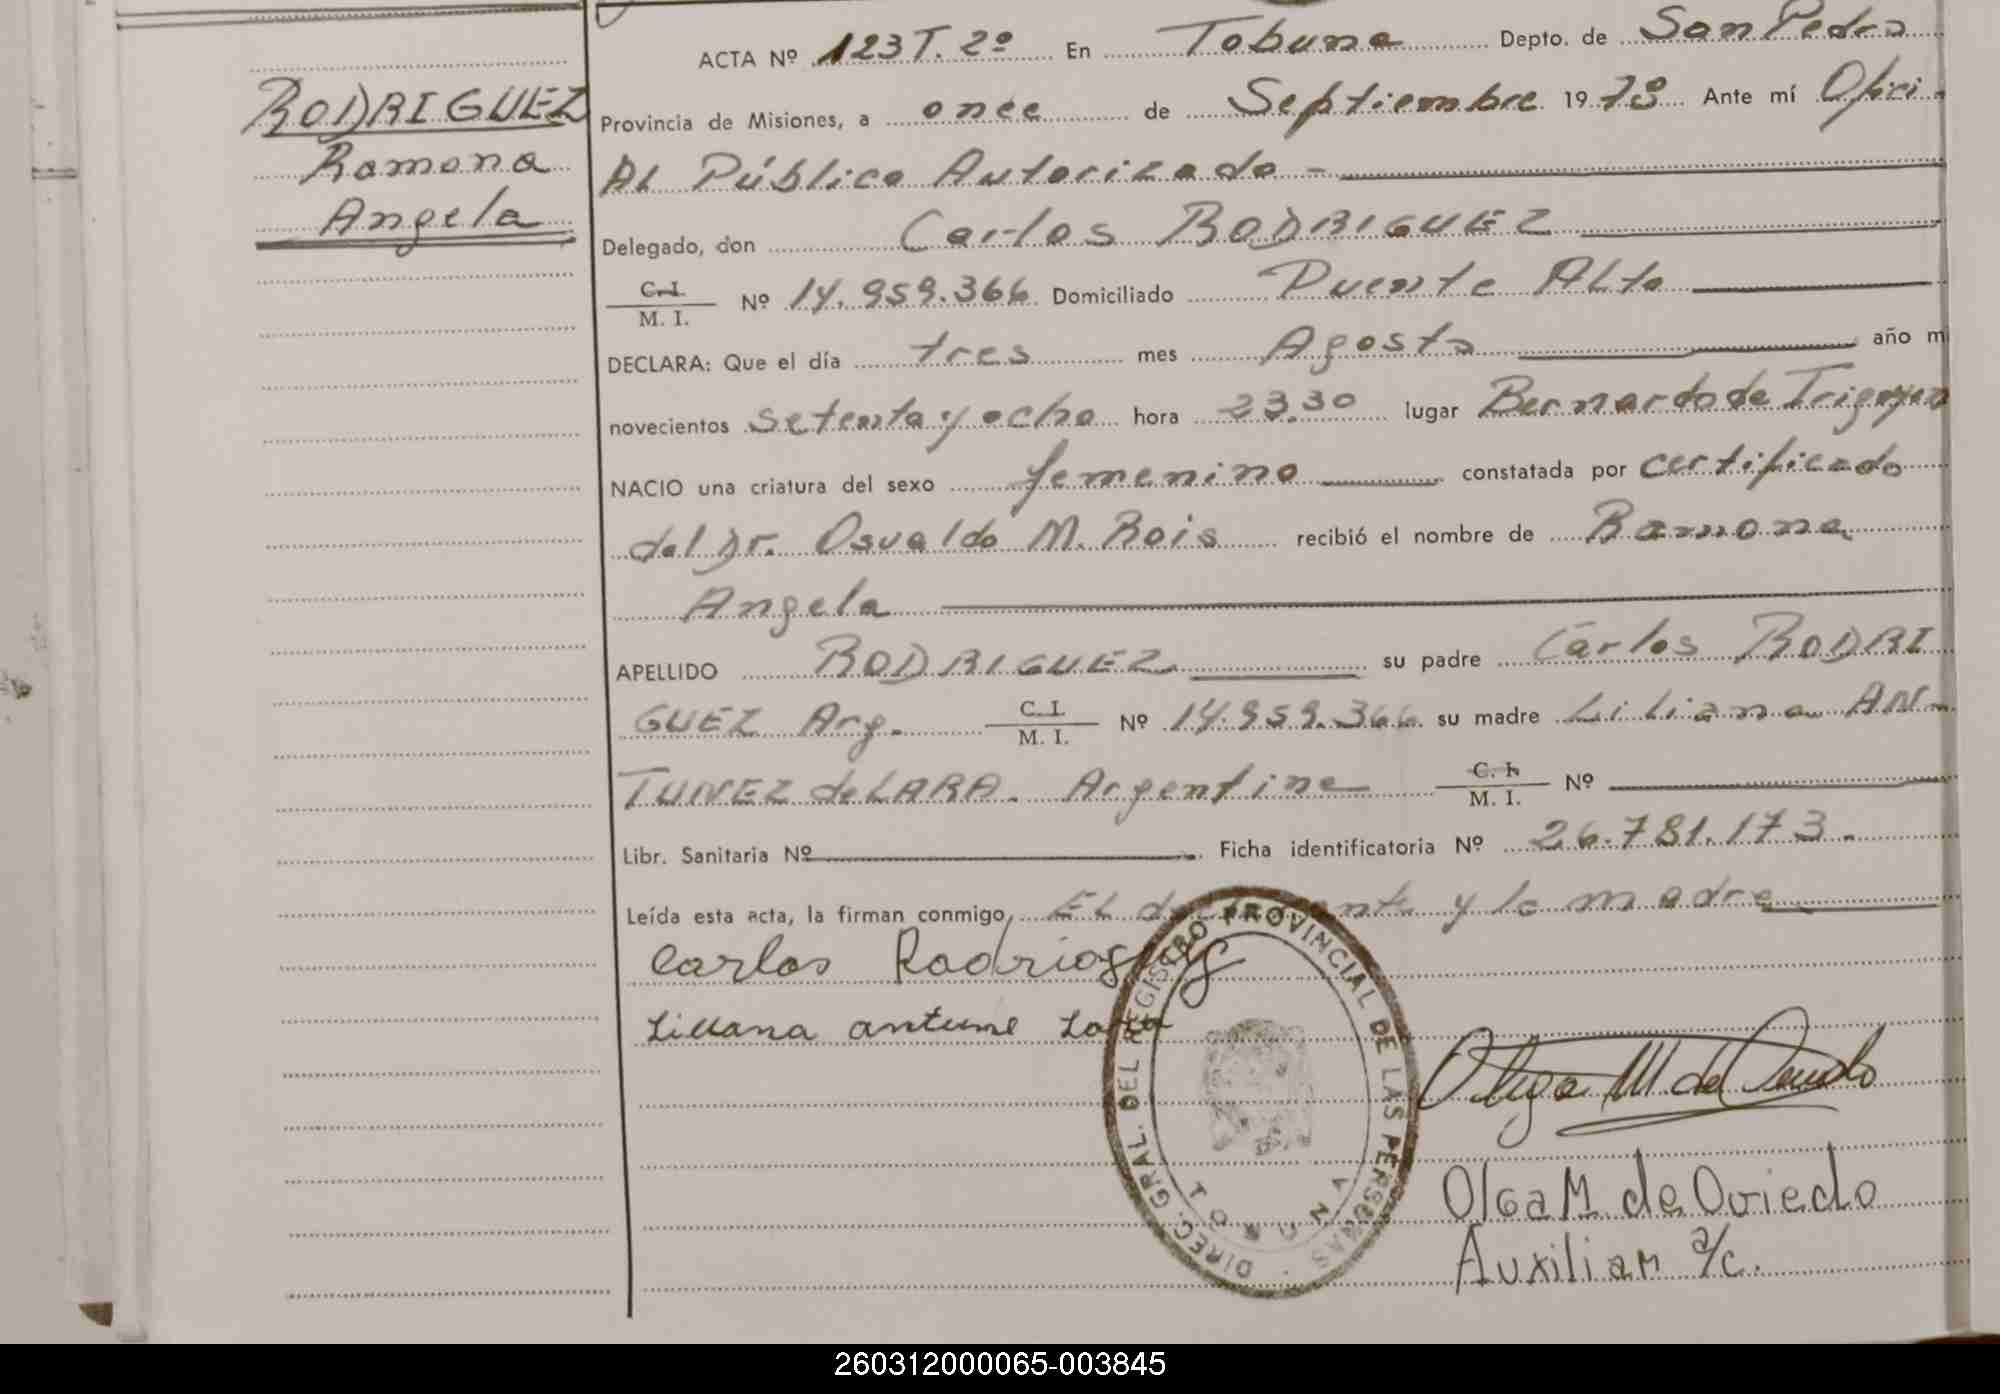 RODRIGUEZ
Ramona
Angela
ACTA Nº 123 T. 2º En Tobuna Depto. de San Pedro
Provincia de Misiones, a once de Septiembre 1978 Ante mí Ofici-
AL Público Autorizado -
Delegado, don Carlos RODRIGUEZ
C. I.
M. I. Nº 14.959.366 Domiciliado Puente Alto
DECLARA: Que el día tres mes Agosto año mi
novecientos setenta y ocho hora 23.30 lugar Bernardo de Irigoyen
NACIO una criatura del sexo femenino constatada por certificado
del Dr. Osvaldo M. Rois recibió el nombre de Ramona
Angela
APELLIDO RODRIGUEZ su padre Carlos RODRI
GUEZ Arg. C. I.
M. I. Nº 14.959.366 su madre Liliana AN-
TUNEZ de LARA. Argentina C. I.
M. I. Nº
Libr. Sanitaria Nº Ficha identificatoria Nº 26.781.173.
Leída esta acta, la firman conmigo, EL y la madre
Carlos Rodriguez
Liliana antune Lara
DIREC. GRAL. DEL REGISTRO PROVINCIAL DE LAS PERSONAS
Olga M. de Oviedo
Auxiliar a/c.
260312000065-003845